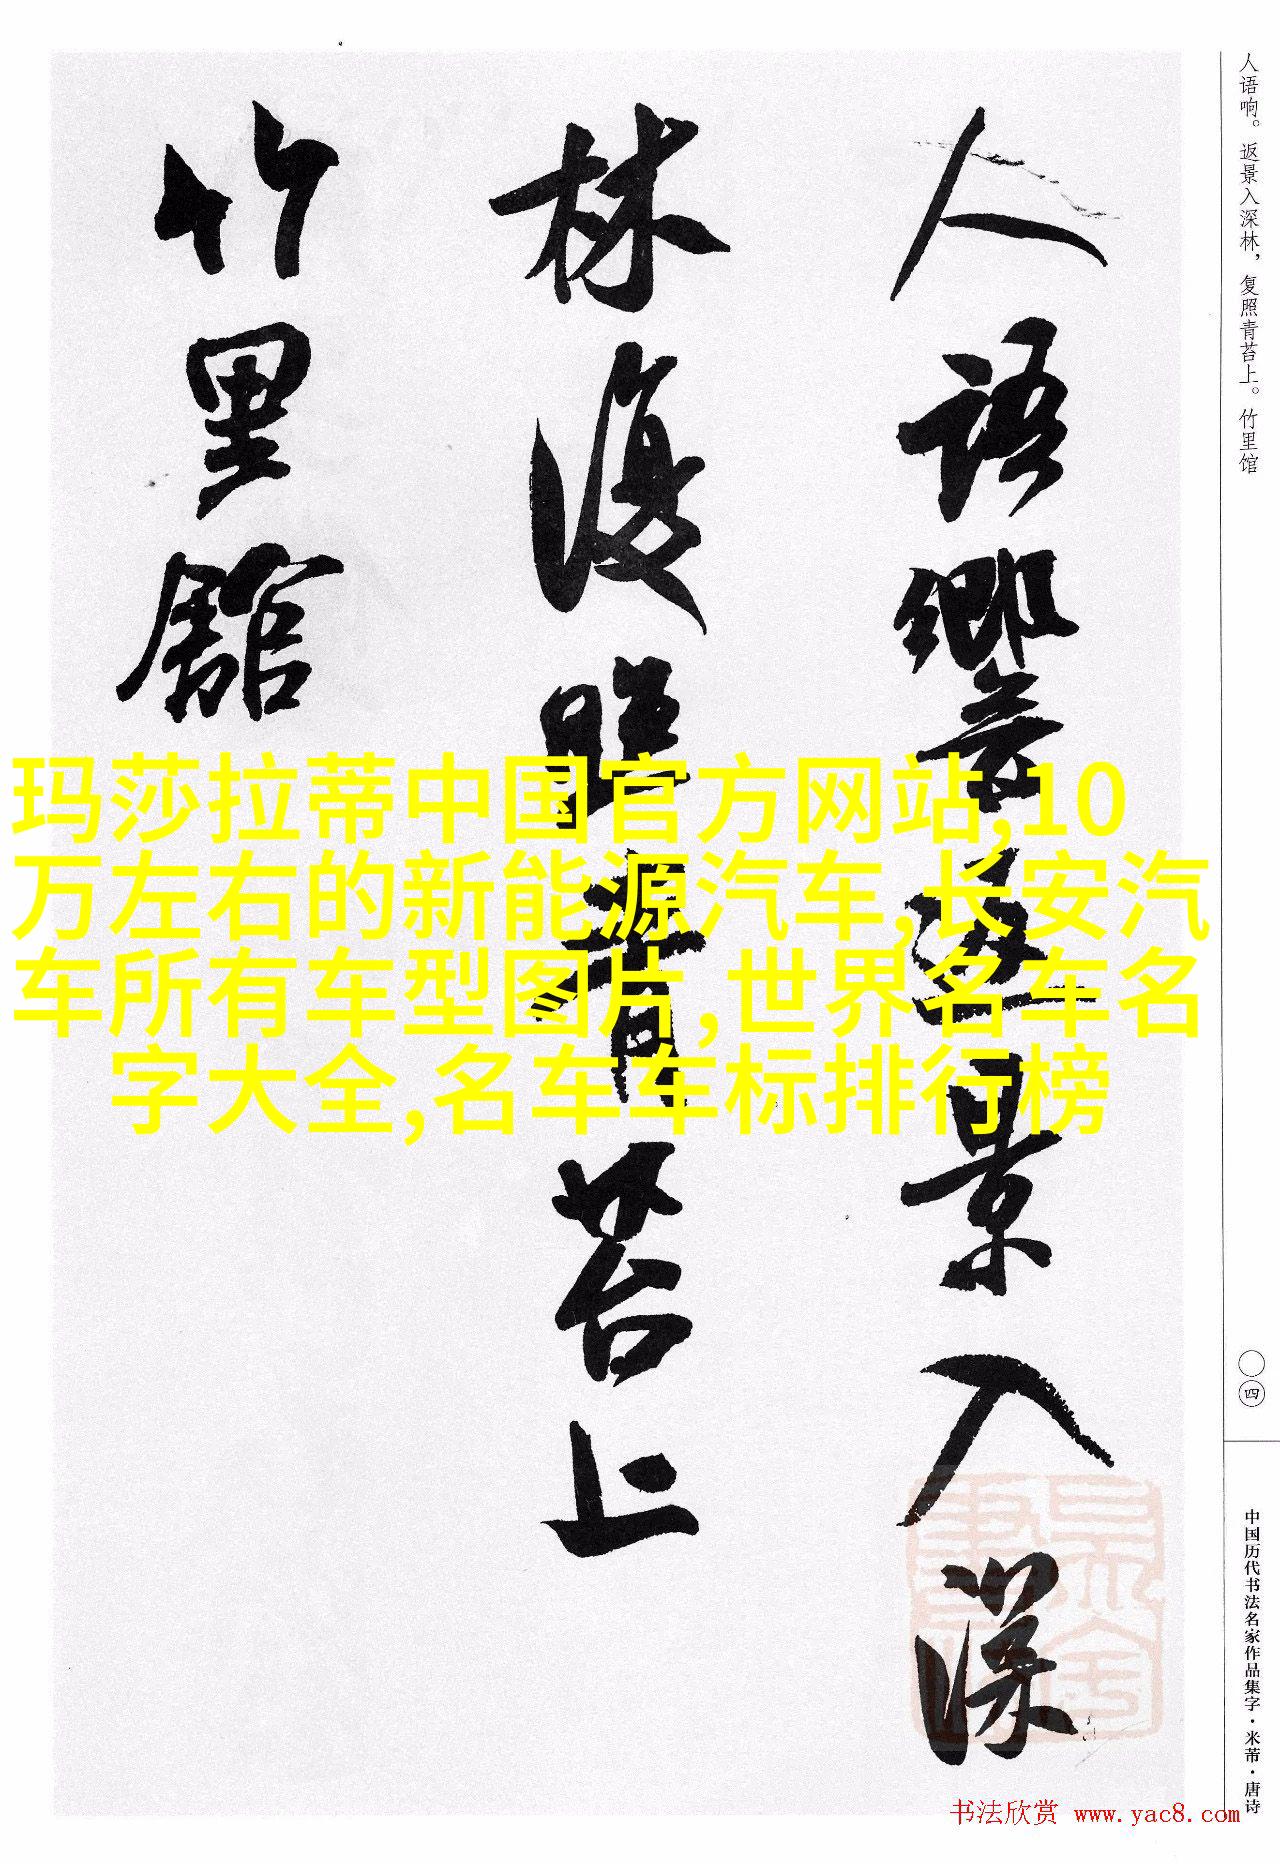 人语响。返景入深林，复照青苔上。竹里馆
人語響返景入深
林復照青苔上
竹里館
玛莎拉蒂中国官方网站,10
万左右的新能源汽车,长安汽
车所有车型图片,世界名车名
字大全,名车车标排行榜
〇四
中国历代书法名家作品集字·米芾·唐诗
书法欣赏 www.yac8.com